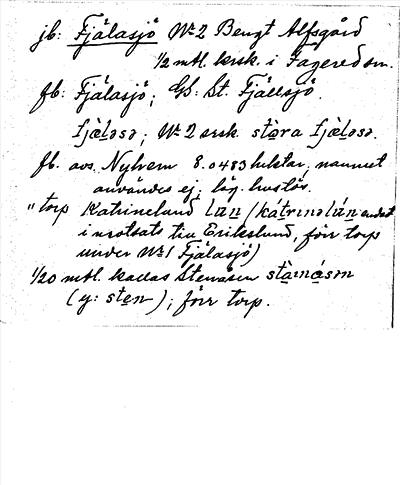 jb: Fjälasjö No 2 Bengt Alfsgård
1/2 mtl. krsk. i Fagered sn.
fb: Fjälasjö; GS: St. Fjällsjö.
No 2 ersk. stora
fb. avs. Nyhem 8.0483 hektar, namnet
användes ej; läg. huslös.
" torp Katrinelund endast
i motsats till Erikslund, förr torp
under No 1 Fjälasjö)
1/20 mtl. kallas Stenåsen
(y: sten); förr torp.